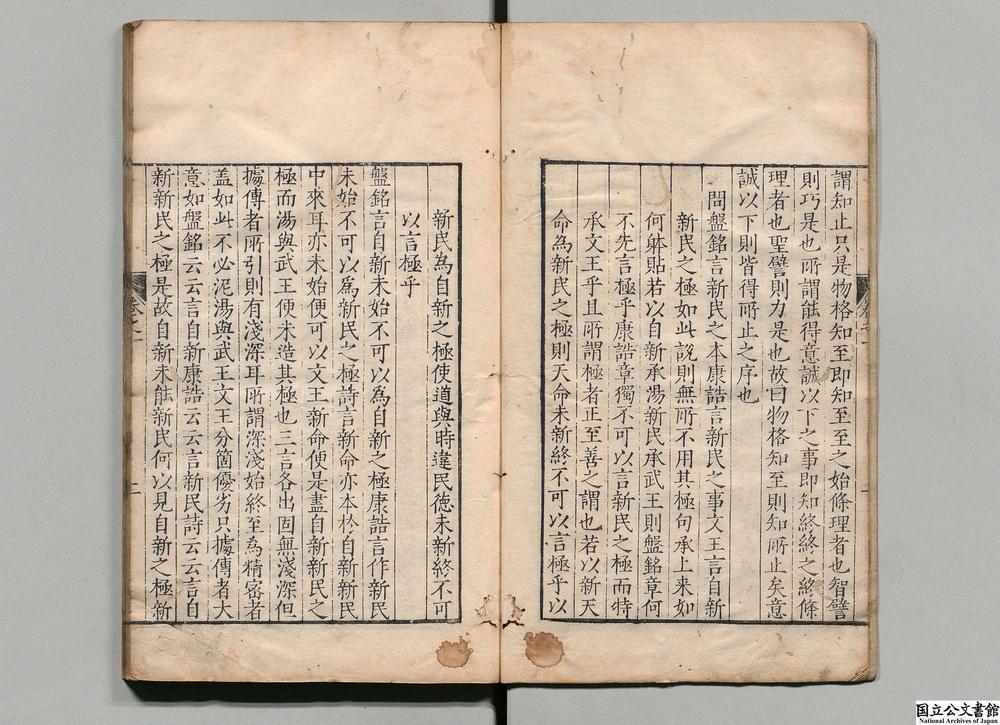 謂知止只是物格知至即知至至之始條理者也智譬
則巧是也所謂能得意誠以下之事即知終終之終條
理者也聖譬則力是也故曰物格知至則知所止矣意
誠以下則皆得所止之序也
問盤銘言新民之本康誥言新民之事文王言自新
新民之極如此說則無所不用其極句承上来如
何躰貼若以自新承湯新民承武王則盤銘章何
不先言極乎康誥章獨不可以言新民之極而特
承文王乎且所謂極者正至善之謂也若以新天
命為新民之極則天命未新終不可以言極乎以
新民為自新之極使道與時違民德未新終不可
以言極乎
盤銘言自新未始不可以為自新之極康誥言作新民
未始不可以為新民之極詩言新命亦本於自新新民
中來耳亦未始便可以文王新命便是盡自新新民之
極而湯與武王便未造其極也三言各出固無淺深但
據傳者所引則有淺深耳所謂深淺始終至為精密者
盖如此不必泥湯與武王文王分箇優劣只據傳者大
意如盤銘云云言自新康誥云云言新民詩云云言自
新新民之極是故自新未能新民何以見自新之極新
卷之一
國立公文書館
National Archives of Japan